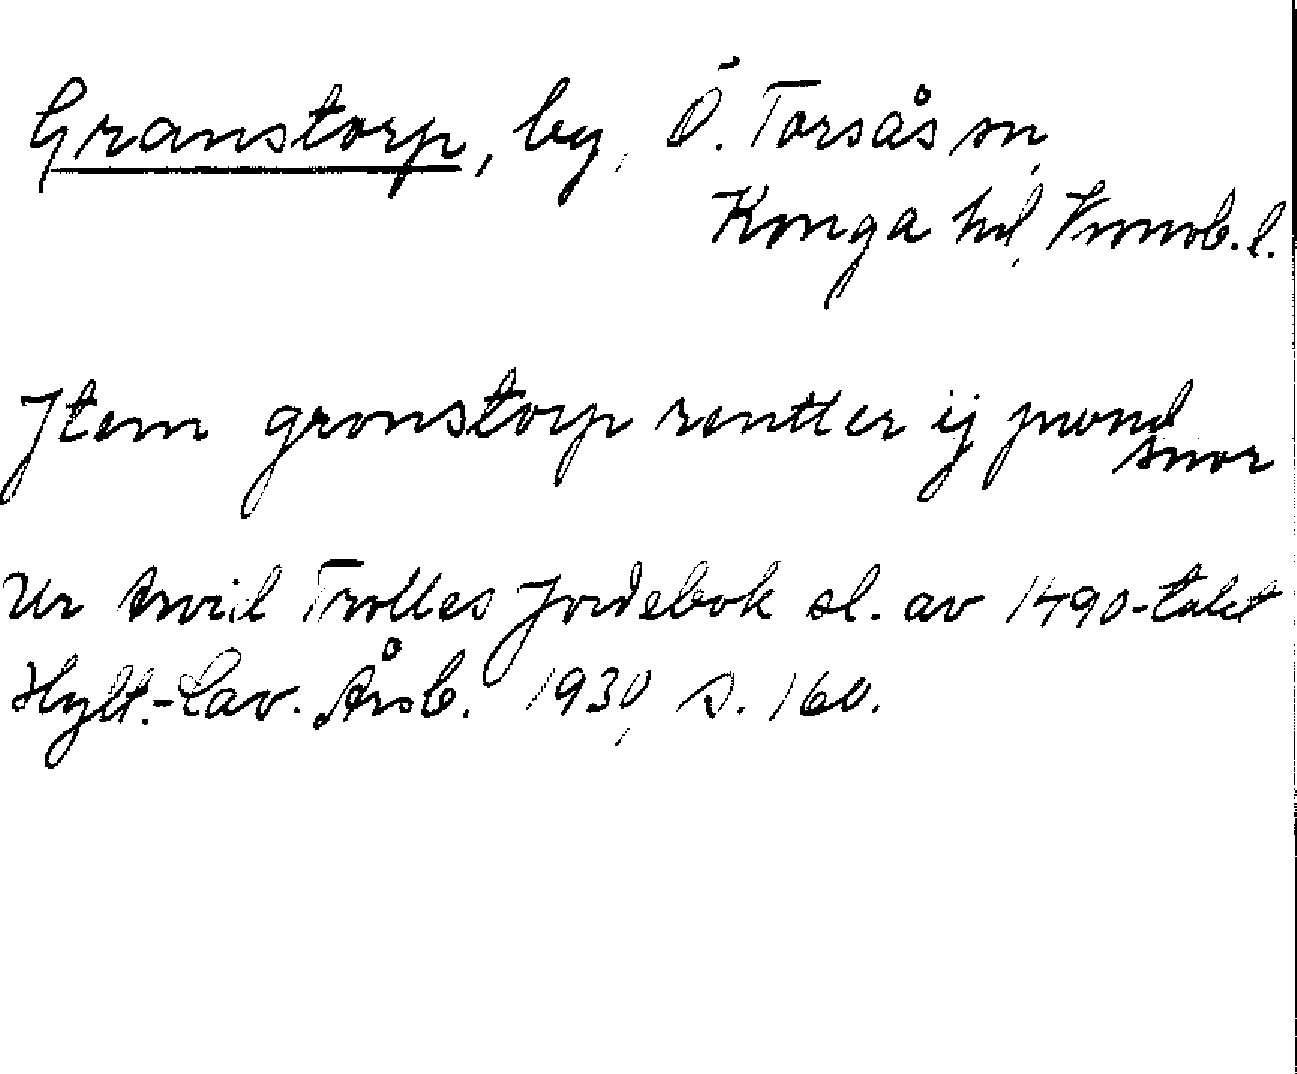 Granstorp, by, Ö. Torsås sn,
Konga hd, Kronob. l.
Jtem gronstorp rentter ij pund
smør
Ur Arvid Trolles Jordebok sl. av 1490-talet
Hylt.-Cav. Årsb. 1930, s. 160.